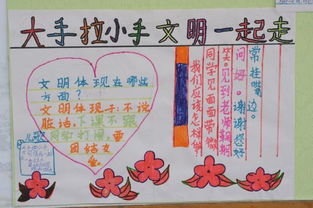 大手拉小手文明一起走
文明体现在哪些
方面？
文明体现于：不说
脏话，下课不追
同学打闹，要
团结友
我们应该怎样做？
同学见面面带微
笑。见到老师鞠躬
问好。谢谢您好
常挂嘴边。